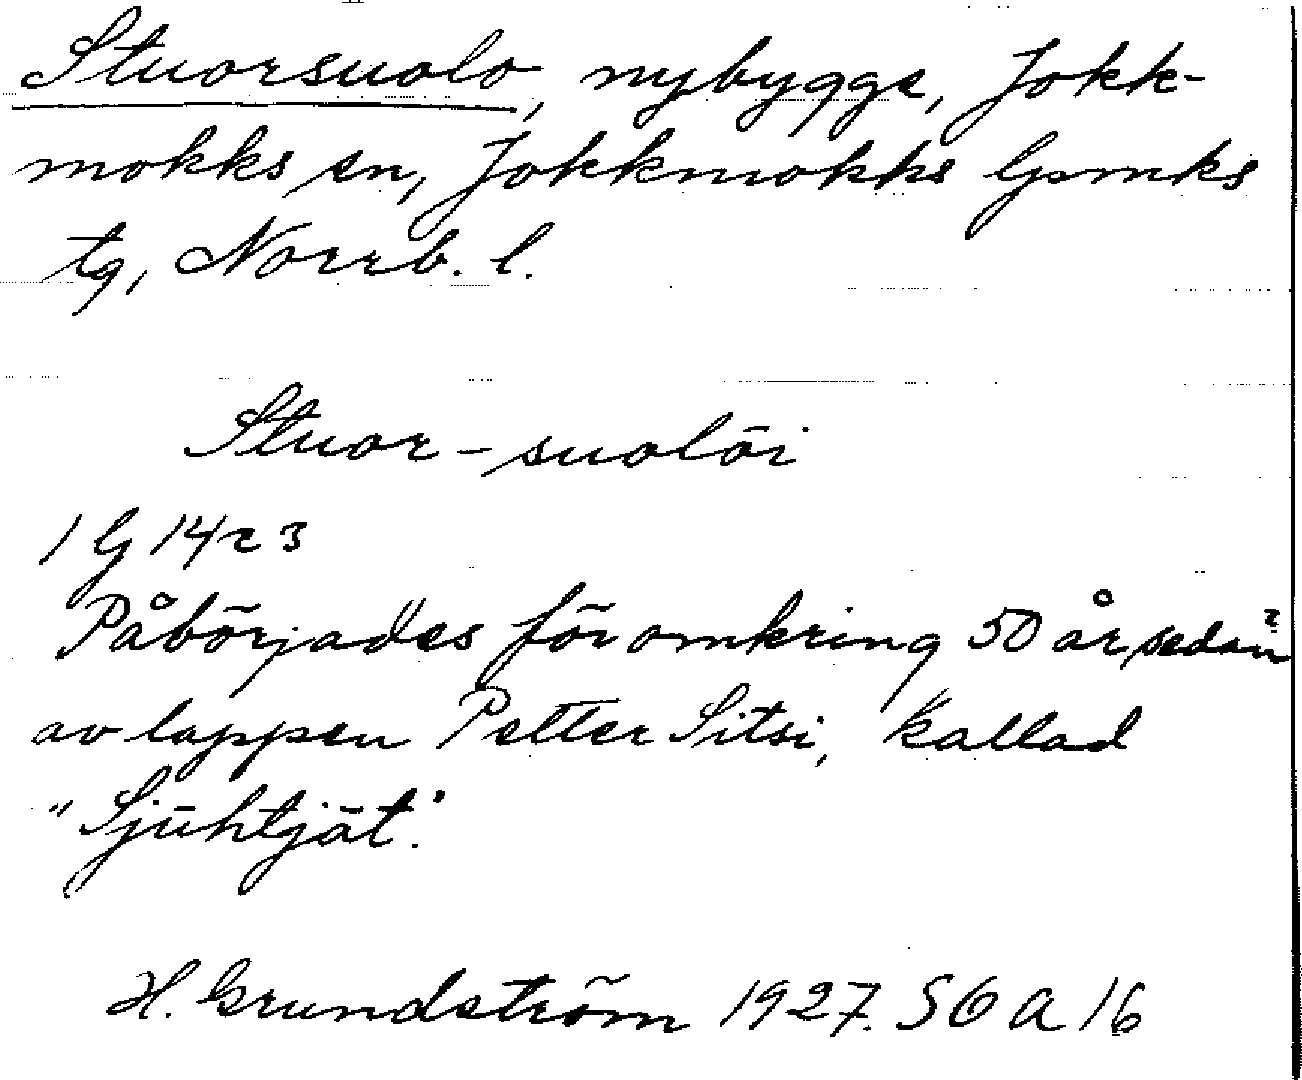 Stuorsuolo, nybygge, Jokk-
mokks sn, Jokkmokks lpmks
tg, Norrb. l.
Stuor-suolōi
1 G 14 c 3
Påbörjades för omkring 50 år sedan?
av lappen Petter Sitsi, kallad
"Sjūhtjāt".
H. Grundström 1927. SOA 16